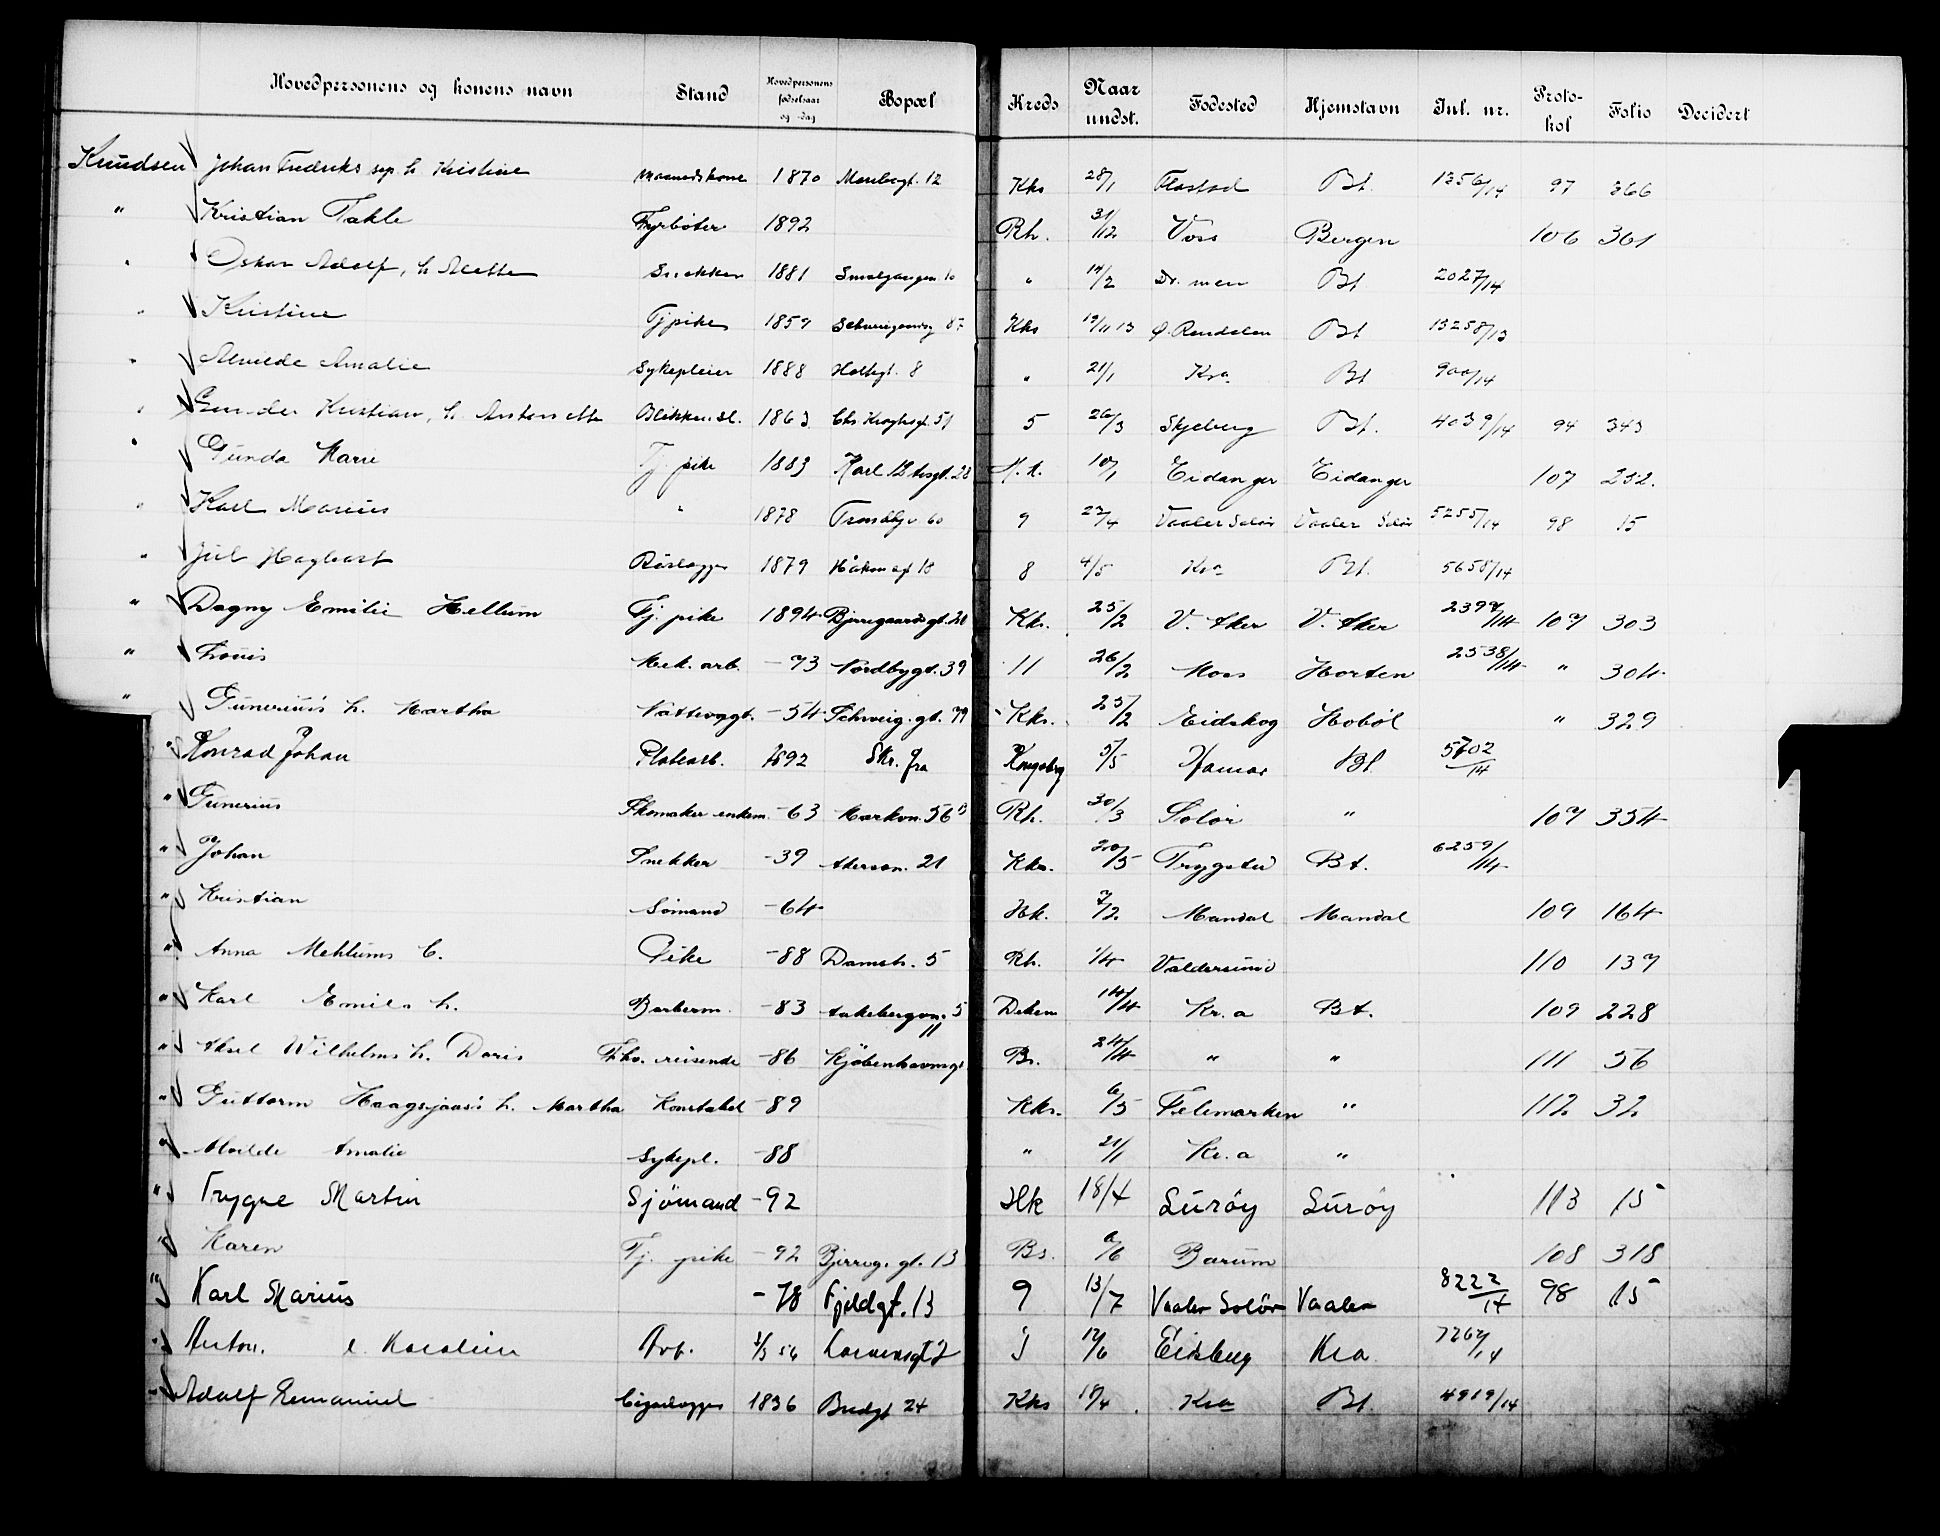 Hovedpersonens og konens navn Stand Hovedpersonens fødselsaar og -dag Bopæl Kreds Naar undst. Fødested Hjemstavn Jnl. nr. Protokol Folio Decidert
Knudsen Johan Fredriks sep. h. Kristine 1870 12 Kks 28/1 Bt. 1356/14 97 366
" Kristian Takle Fyrbøter 1892 Rh. 31/12 Voss Bergen 106 361
" Oskar Adolf, h. Alette Snekker 1881 Smalgangen 10 " 14/2 Dr.men Bt 2027/14
" Kristine Tj.pike 1859 Schweigaardsg 87 Kks 19/11 13 Ø. Rendalen Bt 13258/13
" Alvilde Amalie Sykepleier 1888 Holtegt. 8 " 21/1 Kra Bt 900/14
" Gunder Kristian, h. Antonette Blikkensl. 1863 Chr. Kroghsgt. 51 5 26/3 Skjeberg Bt. 4039/14 94 343
" Gunda Marie Tj. pike 1883 Karl 12 tesgt. 28 10/1 Eidanger Eidanger 107 232.
" Karl Marius " 1878 Trondhjv. 60 9 23/4 Vaaler Solør Vaaler Solør 5255/14 98 15
" Jul Hagbart Rørlægger 1879 18 8 4/5 Kra Bt. 5658/14
" Dagny Emilie Hellum Tj. pike 1894 Bjerregaardsgt. 20 Kks. 25/2 V. Aker V. Aker 2397/14 107 303
" Louis Mek. arb. -73 Nordbygt. 39 11 26/2 Moss Horten 2538/14 " 304
" Gunerius's h. Martha Nattevagt. -54 Schweig. gt. 79 Kks. 25/2 Eidskog Hobøl " 329
" Konrad Johan Platearb. 1892 Skr. fra Kongsbrg 5/5 Hamar Bt 5702/14
" Gunerius Skomaker enkem. -63 Markvn. 56 B Rh. 30/3 Solør " 107 354
" Johan Snekker -39 Akersvn. 21 Kks. 20/5 Trygstad Bt. 6259/14
" Kristian Sømand -64 Hk. 7/2 Mandal Mandal 109 164
" Anna Mehlums C. Pike -88 Damstr. 5 Rh. 1/4 Valdersund 110 137
" Karl Emils h. Barberm. -83 Aakebergvn. 5 II Deken 14/4 Kr.a Bt. 109 228
" Aksel Wilhelms h. Doris Fhv. reisende -86 Kjøbenhavnsgt. Bs. 24/4 " " 111 56
" Guttorm Haagsjaas's h. Martha Konstabel -89 Kks. 6/5 Telemarken " 112 32
" Alvilde Amalie Sykepl. -88 " 21/1 Kr.a "
" Trygve Martin Sjömand -92 Hk 18/4 Luröy Luröy 113 15
" Karen Tj. pike -92 Bjerreg. gt. 13 Bs. 2/6 Bærum 108 318
" Karl Marius -78 Fjeldgt. 13 9 13/7 Vaaler Solör Vaaler 8222/14 98 15
" Anton. e. Karoline Arb. 1/3 56 17/6 Eidsberg Kra 7267/14
" Adolf Emanuel Cigarlægger 1836 Bredgt 24 Kks 18/4 Kra Bt. 4919/14